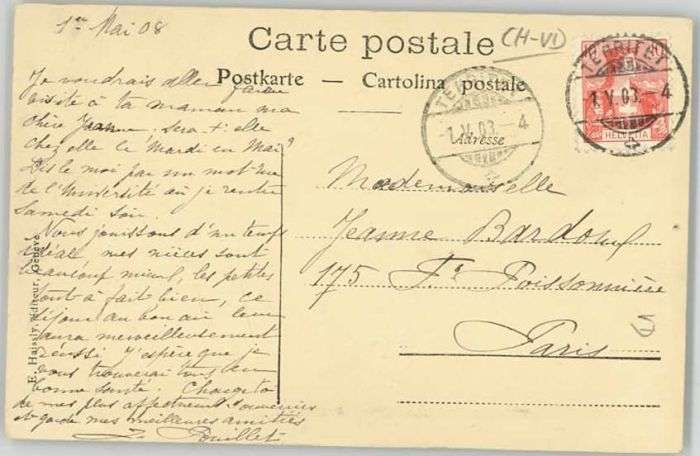 1er Mai 08
Carte postale
(H-VD)
Postkarte — Cartolina postale
Adresse
TERRITET
1.V.08.-4
TERRITET
1.V.08.-4
HELVETIA
Je voudrais aller faire
visite à ta maman ma
chère Jeanne, sera-t-elle
chez elle ce Mardi en Mai?
Dis le moi par un mot rue
de l'Université où je rentre
Samedi soir.
Nous jouissons d'un temps
idéal mes nièces sont
beaucoup mieux, les petites
tout à fait bien, ce
séjour au bon air leur
aura merveilleusement
réussi J'espère que je
vous trouverai en
bonne santé.
de mes plus affectueux souvenirs
et garde mes meilleures amitiés
Pouillet
E. Haissly, éditeur, Genève
Mademoiselle
Jeanne Bardoux
175 Fg Poissonnière
Paris